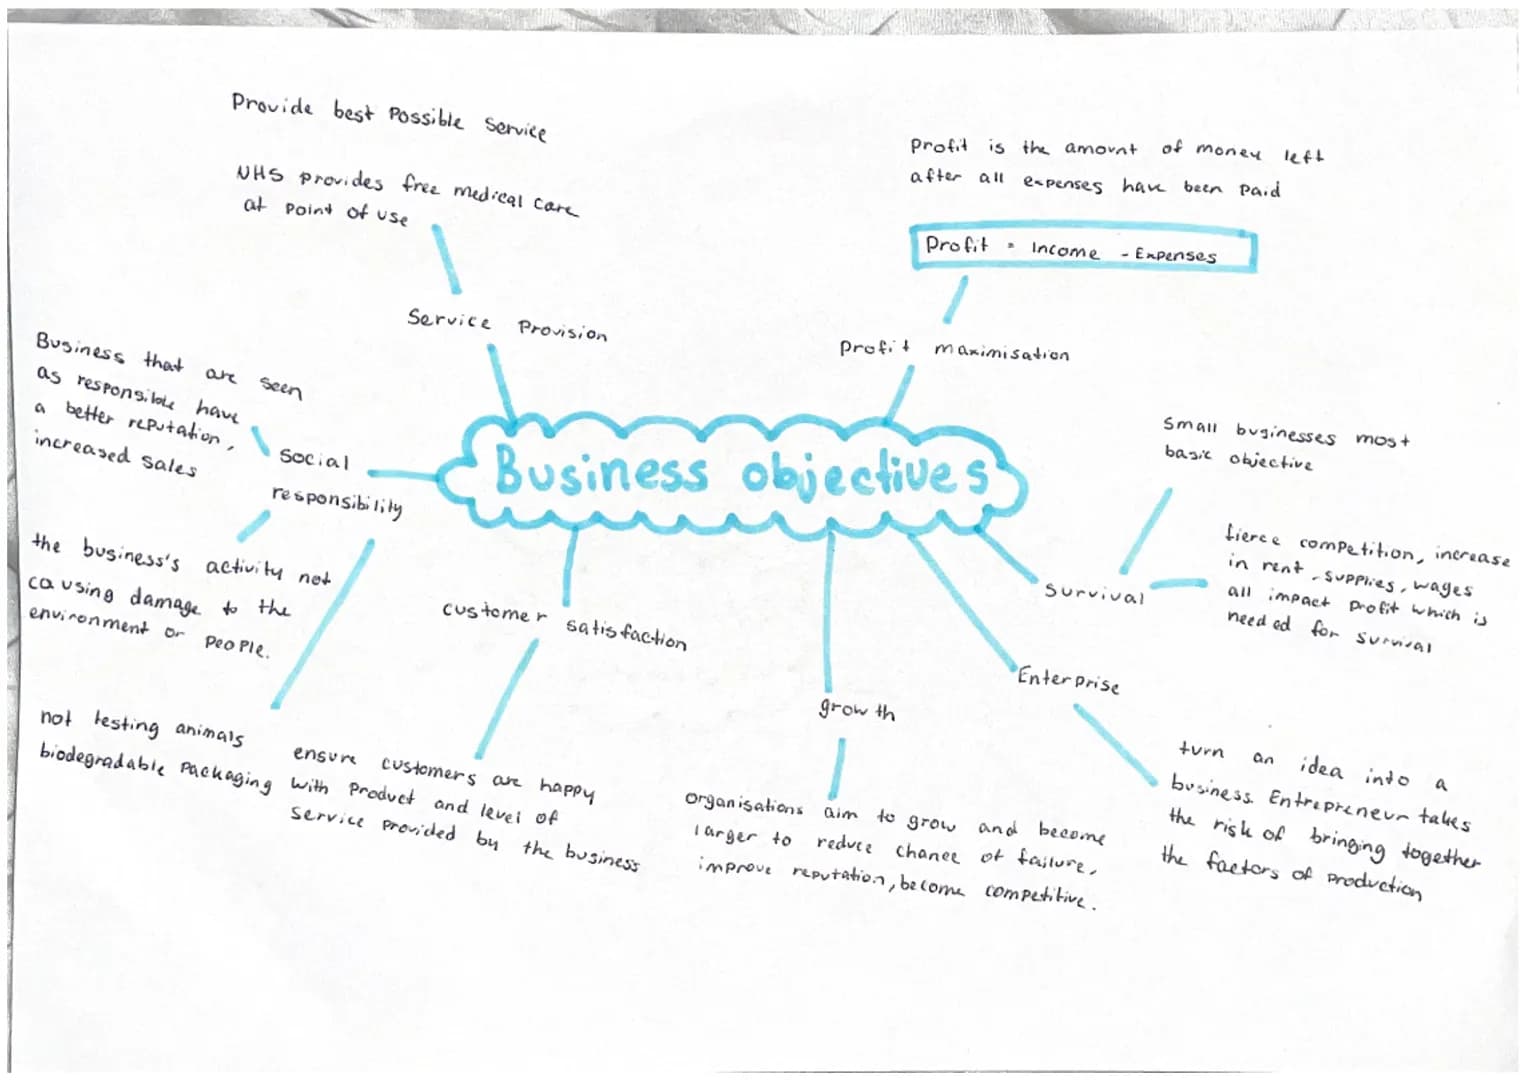 Provide best Possible Service
NHS Provides free medical care
at Point of use
Service Provision
Profit is the amount of money left
after all expenses have been Paid
Profit = Income - Expenses
Profit maximisation
Business that are seen
as responsible have
a better reputation,
increased sales
Social
responsibility
the business's activity not
causing damage to the
environment or People.
not testing animals
biodegradable Packaging
Business objectives
customer satisfaction
ensure customers are happy
with Product and level of
Service Provided by the business
growth
organisations aim to grow and become
larger to reduce chance of failure,
improve reputation, become competitive.
Small businesses most
basic objective
Survival
fierce competition, increase
in rent, supplies, wages
all impact Profit which is
needed for survival
Enterprise
turn an idea into a
business. Entrepreneur takes
the risk of bringing together
the factors of Production